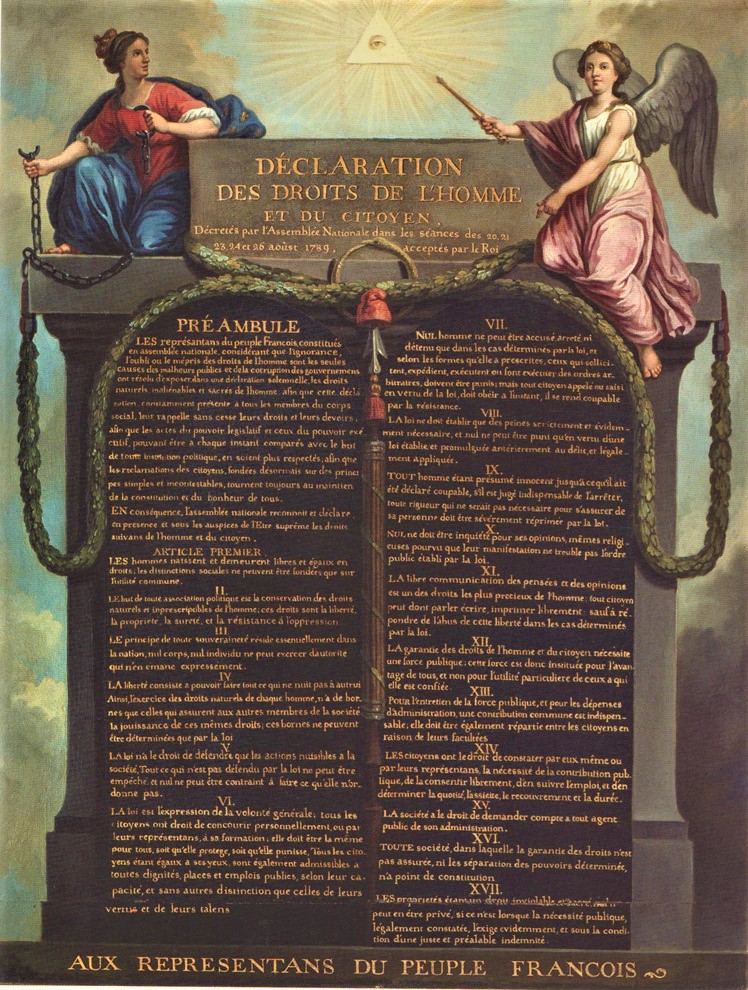 DÉCLARATION
DES DROITS DE L'HOMME
ET DU CITOYEN,
Décretés par l'Assemblée Nationale dans les séances des 20, 21
23, 24 et 26 aoûst 1789, acceptés par le Roi
PRÉAMBULE
LES représantans du peuple Francois, constitués
en assemblée nationale, considérant que l'ignorance,
l'oubli ou le mépris des droits de l'homme sont les seules
causes des malheurs publics et de la corruption des gouvernemens
ont résolu d'exposer, dans une déclaration solemnelle, les droits
naturels, inaliénables et sacrés de l'homme; afin que cette décla
ration, constamment présente a tous les membres du corps
social, leur rappelle sans cesse leurs droits et leurs devoirs;
afin que les actes du pouvoir législatif et ceux du pouvoir exé
cutif, pouvant être à chaque instant comparés avec le but
de toute institution politique, en soient plus respectés; afin que
les réclamations des citoyens, fondées désormais sur des princi
pes simples et incontestables, tournent toujours au maintien
de la constitution et du bonheur de tous.
EN conséquence, l'assemblée nationale reconnoit et déclare
en presence et sous les auspices de l'Etre suprême les droits
suivans de l'homme et du citoyen.
ARTICLE PREMIER
LES hommes naissent et demeurent libres et égaux en
droits; les distinctions sociales ne peuvent être fondées que sur
l'utilité commune.
II.
LE but de toute association politique est la conservation des droits
naturels et inprescriptibles de l'homme; ces droits sont la liberté,
la propriété, la sureté, et la résistance à l'oppression.
III
LE principe de toute souveraineté réside essentiellement dans
la nation, nul corps, nul individu ne peut exercer d'autorité
qui n'en émane expressement.
IV
LA liberté consiste a pouvoir faire tout ce qui ne nuit pas à autrui
Ainsi, l'exercice des droits naturels de chaque homme, n'a de bor
nes que celles qui assurent aux autres membres de la société
la jouissance de ces mêmes droits; ces bornes ne peuvent
être déterminées que par la loi
V.
LA loi n'a le droit de défendre que les actions nuisibles a la
société, Tout ce qui n'est pas défendu par la loi ne peut être
empêché, et nul ne peut être contraint à faire ce qu'elle n'or
donne pas.
VI.
LA loi est l'expression de la volonté générale; tous les
citoyens ont droit de concourir personnellement, ou par
leurs représentans, à sa formation; elle doit être la même
pour tous, soit qu'elle protege, soit qu'elle punisse, Tous les cito
yens étant égaux a ses yeux, sont également admissibles a
toutes dignités, places et emplois publics, selon leur ca
pacité, et sans autres distinction que celles de leurs
vertus et de leurs talens
VII.
NUL homme ne peut être accusé, arreté ni
détenu que dans les cas déterminés par la loi, et
selon les formes qu'elle a prescrites, ceux qui sollici-
tent, expédient, exécutent ou font exécuter des ordres ar-
bitraires, doivent être punis; mais tout citoyen appelé ou saisi
en vertu de la loi, doit obéir a l'instant, il se rend coupable
par la résistance.
VIII.
LA loi ne doit établir que des peines strictement et évidem-
ment nécessaire, et nul ne peut être puni qu'en vertu d'une
loi établie et promulguée antérierement au délit, et légale-
ment appliquée.
IX.
TOUT homme étant présumé innocent jusqu'a ce qu'il ait
été déclaré coupable, s'il est jugé indispensable de l'arrêter,
toute rigueur qui ne serait pas nécessaire pour s'assurer de
sa personne doit être sévérement réprimer par la loi.
X.
NUL ne doit être inquiété pour ses opinions, mêmes religi-
euses pourvu que leur manifestation ne trouble pas l'ordre
public établi par la loi.
XI.
LA libre communication des pensées et des opinions
est un des droits les plus precieux de l'homme; tout citoyen
peut dont parler écrire, imprimer librement; sauf à ré-
pondre de l'abus de cette liberté dans les cas déterminés
par la loi.
XII.
LA garantie des droits de l'homme et du citoyen nécessite
une force publique; cette force est donc instituée pour l'avan
tage de tous, et non pour l'utilité particuliere de ceux a qui
elle est confiée.
XIII.
POUR l'entretien de la force publique, et pour les dépenses
d'administration, une contribution commune est indispen-
sable; elle doit être également répartie entre les citoyens en
raison de leurs facultées
XIV.
LES citoyens ont le droit de constater par eux même ou
par leurs représentans, la nécessité de la contribution pub
lique, de la consentir librement, d'en suivre l'emploi, et d'en
déterminer la quotité, l'assiette, le recouvrement et la durée.
XV.
LA société a le droit de demander compte a tout agent
public de son administration.
XVI.
TOUTE société, dans laquelle la garantie des droits n'est
pas assurée, ni les séparation des pouvoirs déterminée,
n'a point de constitution
XVII.
LES proprietés étant un droit inviolable et sacré, nul n
peut en être privé, si ce n'est lorsque la nécessité publique,
légalement constatée, l'exige evidemment, et sous la condi
tion d'une juste et préalable indemnité.
AUX REPRESENTANS DU PEUPLE FRANCOIS